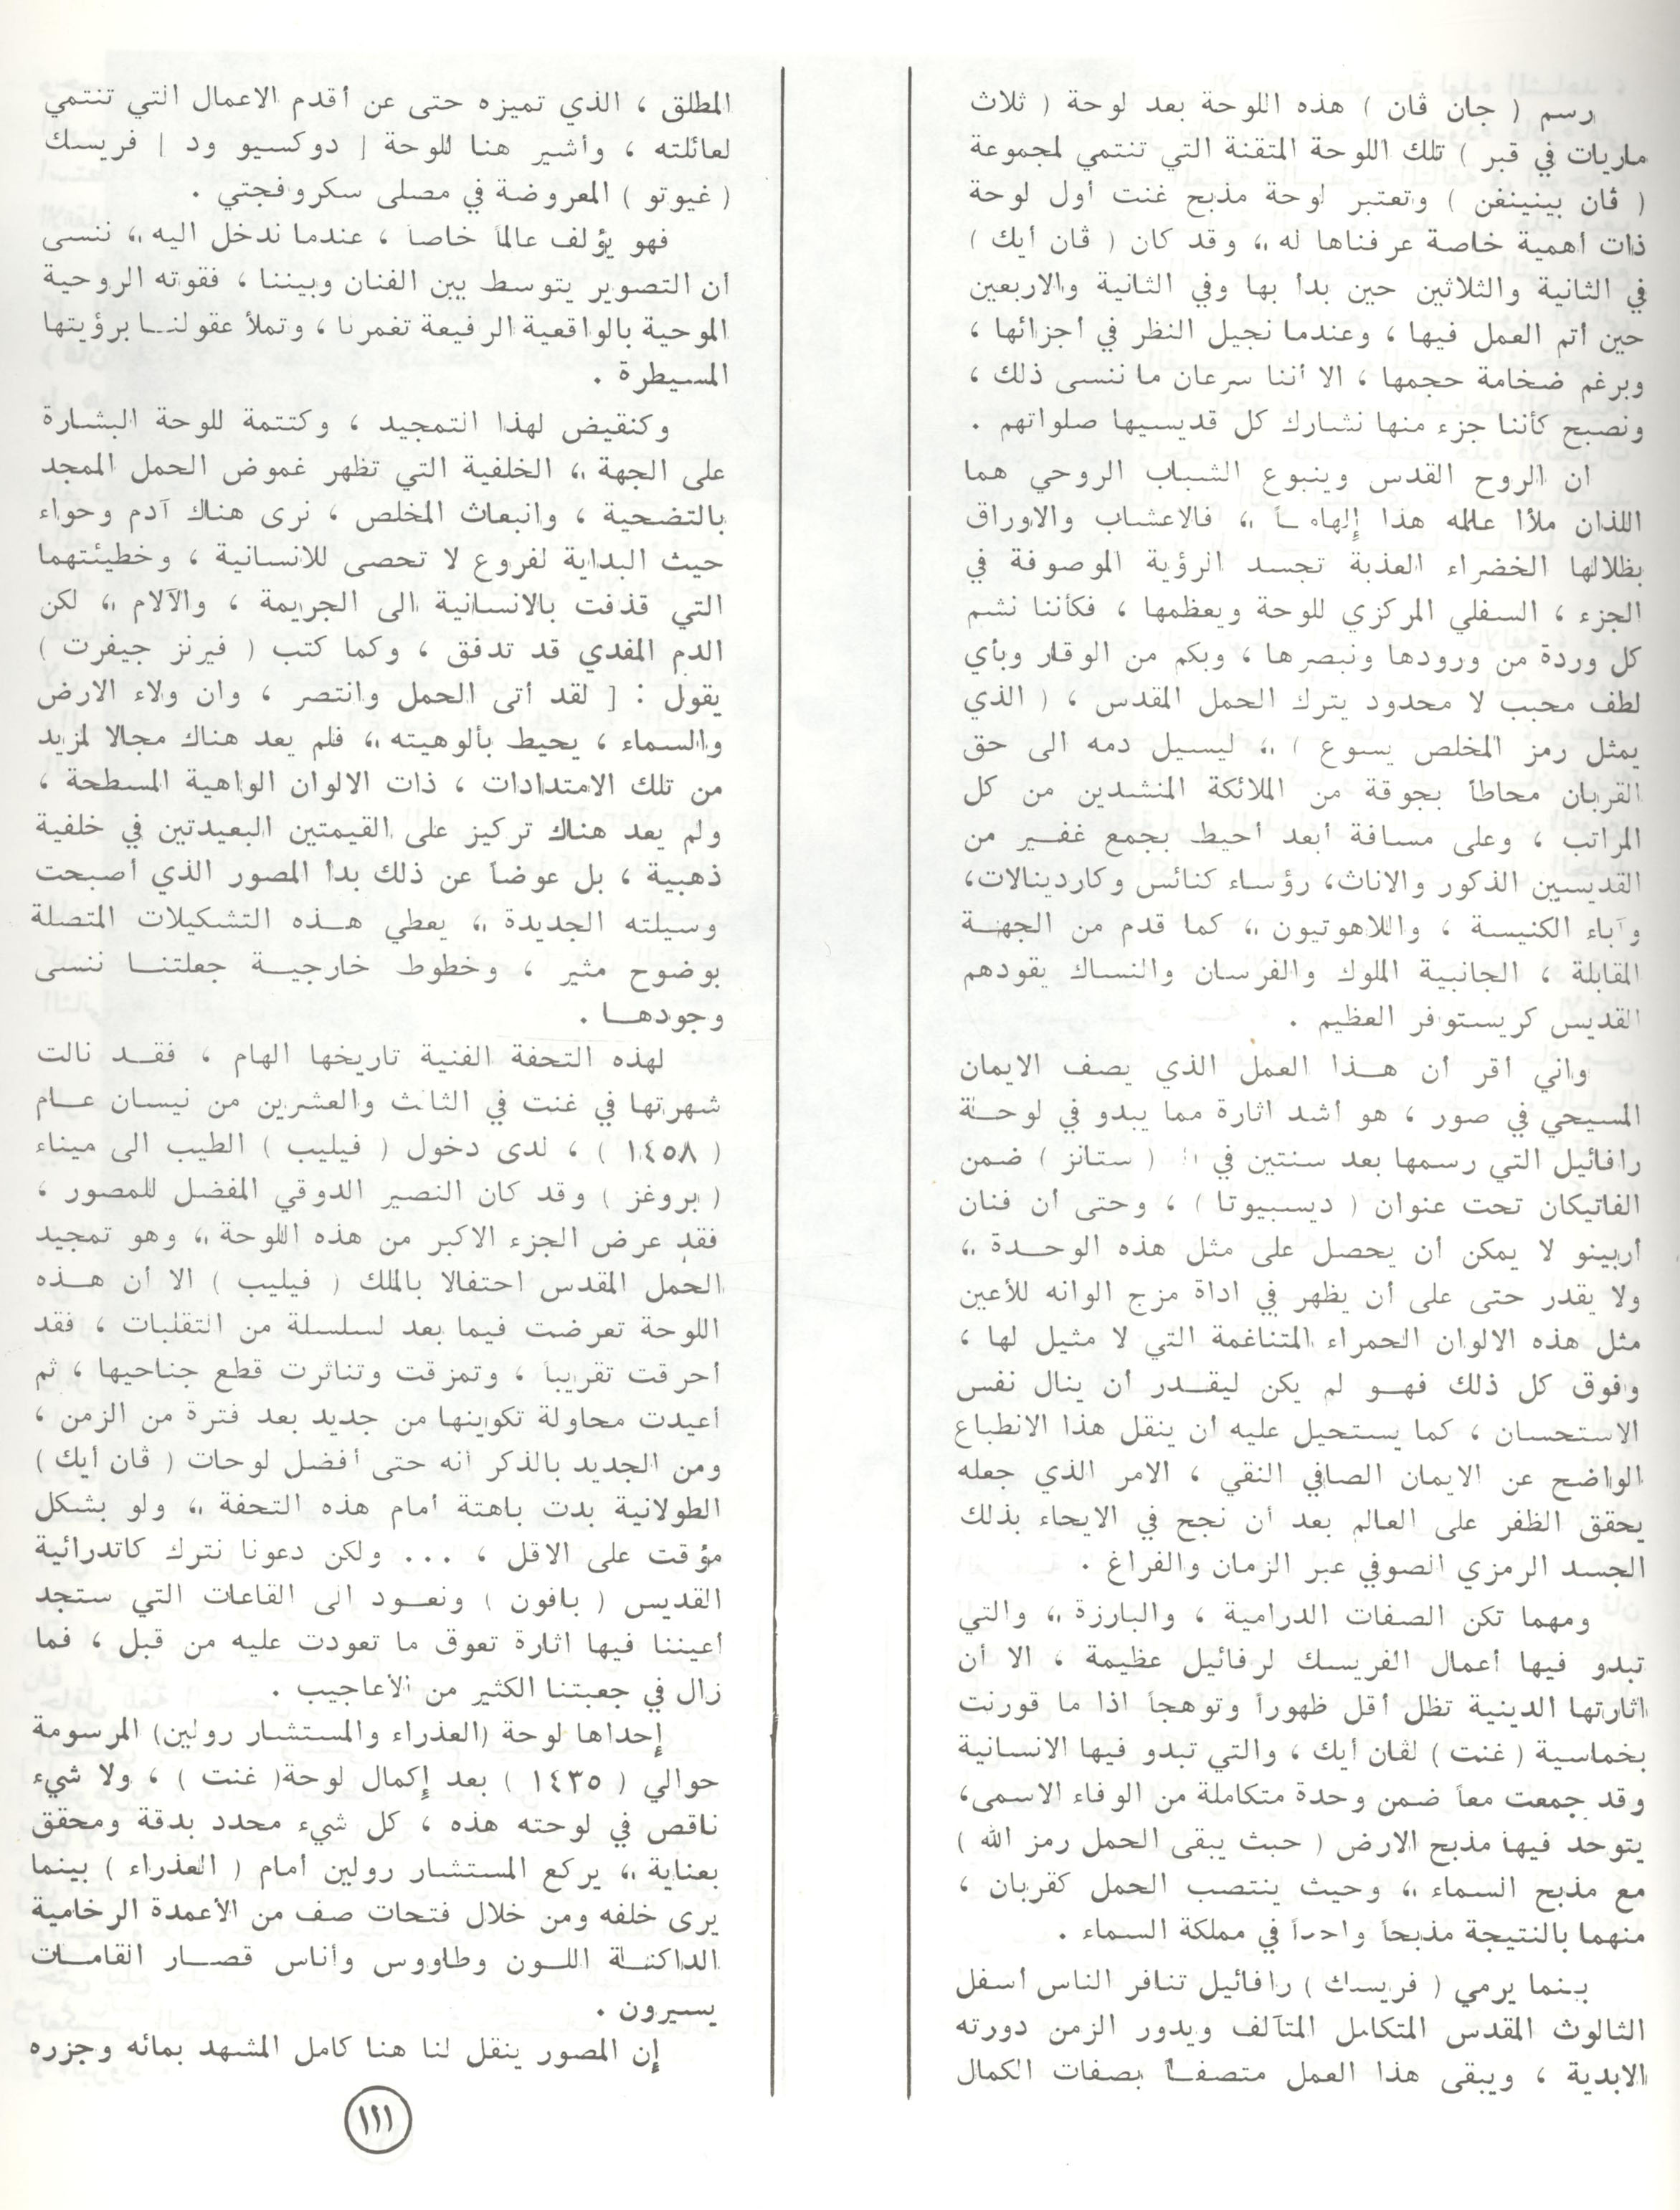 رسم ( جان ڤان ) هذه اللوحة بعد لوحة ( ثلاث
ماريات في قبر ) تلك اللوحة المتقنة التي تنتمي لمجموعة
( ڤان بينينفن ) وتعتبر لوحة مذبح غنت أول لوحة
ذات أهمية خاصة عرفناها له ، وقد كان ( ڤان أيك )
في الثانية والثلاثين حين بدأ بها وفي الثانية والاربعين
حين أتم العمل فيها ، وعندما نجيل النظر في أجزائها ،
وبرغم ضخامة حجمها ، الا أننا سرعان ما ننسى ذلك ،
ونصبح كأننا جزء منها نشارك كل قديسيها صلواتهم .
ان الروح القدس وينبوع الشباب الروحي هما
اللذان ملأا عالمه هذا إلهاماً ، فالاعشاب والاوراق
بظلالها الخضراء العذبة تجسد الرؤية الموصوفة في
الجزء ، السفلي المركزي للوحة ويعظمها ، فكأننا نشم
كل وردة من ورودها ونبصرها ، وبكم من الوقار وبأي
لطف محبب لا محدود يترك الحمل المقدس ، ( الذي
يمثل رمز المخلص يسوع ) ، ليسيل دمه الى حق
القربان محاطاً بجوقة من الملائكة المنشدين من كل
المراتب ، وعلى مسافة أبعد أحيط بجمع غفير من
القديسيين الذكور والاناث، رؤساء كنائس وكاردينالات،
وآباء الكنيسة ، واللاهوتيون ، كما قدم من الجهة
المقابلة ، الجانبية الملوك والفرسان والنساك يقودهم
القديس كريستوفر العظيم .
واني أقر أن هذا العمل الذي يصف الايمان
المسيحي في صور ، هو أشد اثارة مما يبدو في لوحة
رافائيل التي رسمها بعد سنتين في ( ستانز ) ضمن
الفاتيكان تحت عنوان ( ديسبيوتا ) ، وحتى أن فنان
أربينو لا يمكن أن يحصل على مثل هذه الوحدة ،
ولا يقدر حتى على أن يظهر في اداة مزج الوانه للأعين
مثل هذه الالوان الحمراء المتناغمة التي لا مثيل لها ،
وفوق كل ذلك فهو لم يكن ليقدر أن ينال نفس
الاستحسان ، كما يستحيل عليه أن ينقل هذا الانطباع
الواضح عن الايمان الصافي النقي ، الامر الذي جعله
يحقق الظفر على العالم بعد أن نجح في الايحاء بذلك
الجسد الرمزي الصوفي عبر الزمان والفراغ .
ومهما تكن الصفات الدرامية ، والبارزة ، والتي
تبدو فيها أعمال الفريسك لرفائيل عظيمة ، الا أن
اثارتها الدينية تظل أقل ظهوراً وتوهجاً اذا ما قورنت
بخماسية ( غنت ) لڤان أيك ، والتي تبدو فيها الانسانية
وقد جمعت معاً ضمن وحدة متكاملة من الوفاء الاسمى،
يتوحد فيها مذبح الارض ( حيث يبقى الحمل رمز الله )
مع مذبح السماء ، وحيث ينتصب الحمل كقربان ،
منهما بالنتيجة مذبحاً واحداً في مملكة السماء .
بينما يرمي ( فريسك ) رافائيل تنافر الناس أسفل
الثالوث المقدس المتكامل المتآلف ويدور الزمن دورته
الابدية ، ويبقى هذا العمل متصفاً بصفات الكمال
المطلق ، الذي تميزه حتى عن أقدم الاعمال التي تنتمي
لعائلته ، وأشير هنا للوحة [ دوكسيو ود ] فريسك
( غيوتو ) المعروضة في مصلى سكروفجتي .
فهو يؤلف عالماً خاصاً ، عندما ندخل اليه ، ننسى
أن التصوير يتوسط بين الفنان وبيننا ، فقوته الروحية
الموحية بالواقعية الرفيعة تغمرنا ، وتملأ عقولنا برؤيتها
المسيطرة .
وكنقيض لهذا التمجيد ، وكتتمة للوحة البشارة
على الجهة ، الخلفية التي تظهر غموض الحمل الممجد
بالتضحية ، وانبعاث المخلص ، نرى هناك آدم وحواء
حيث البداية لفروع لا تحصى للانسانية ، وخطيئتهما
التي قذفت بالانسانية الى الجريمة ، والآلام ، لكن
الدم المفدي قد تدفق ، وكما كتب ( فيرنز جيفرت )
يقول : [ لقد أتى الحمل وانتصر ، وان ولاء الارض
والسماء ، يحيط بألوهيته ، فلم يعد هناك مجالا لمزيد
من تلك الامتدادات ، ذات الالوان الواهية المسطحة ،
ولم يعد هناك تركيز على القيمتين البعيدتين في خلفية
ذهبية ، بل عوضاً عن ذلك بدأ المصور الذي أصبحت
وسيلته الجديدة ، يعطي هذه التشكيلات المتصلة
بوضوح مثير ، وخطوط خارجية جعلتنا ننسى
وجودها .
لهذه التحفة الفنية تاريخها الهام ، فقد نالت
شهرتها في غنت في الثالث والعشرين من نيسان عام
( ١٤٥٨ ) ، لدى دخول ( فيليب ) الطيب الى ميناء
( بروغز ) وقد كان النصير الدوقي المفضل للمصور ،
فقد عرض الجزء الاكبر من هذه اللوحة ، وهو تمجيد
الحمل المقدس احتفالا بالملك ( فيليب ) الا أن هذه
اللوحة تعرضت فيما بعد لسلسلة من التقلبات ، فقد
أحرقت تقريباً ، وتمزقت وتناثرت قطع جناحيها ، ثم
أعيدت محاولة تكوينها من جديد بعد فترة من الزمن ،
ومن الجديد بالذكر أنه حتى أفضل لوحات ( ڤان أيك )
الطولانية بدت باهتة أمام هذه التحفة ، ولو بشكل
مؤقت على الاقل ، ... ولكن دعونا نترك كاتدرائية
القديس ( بافون ) ونعود الى القاعات التي ستجد
أعيننا فيها اثارة تعوق ما تعودت عليه من قبل ، فما
زال في جعبتنا الكثير من الأعاجيب .
إحداها لوحة (العذراء والمستشار رولين) المرسومة
حوالي ( ١٤٣٥ ) بعد إكمال لوحة( غنت ) ، ولا شيء
ناقص في لوحته هذه ، كل شيء محدد بدقة ومحقق
بعناية ، يركع المستشار رولين أمام ( العذراء ) بينما
يرى خلفه ومن خلال فتحات صف من الأعمدة الرخامية
الداكنة اللون وطاووس وأناس قصار القامات
يسيرون .
إن المصور ينقل لنا هنا كامل المشهد بمائه وجزره
١١١